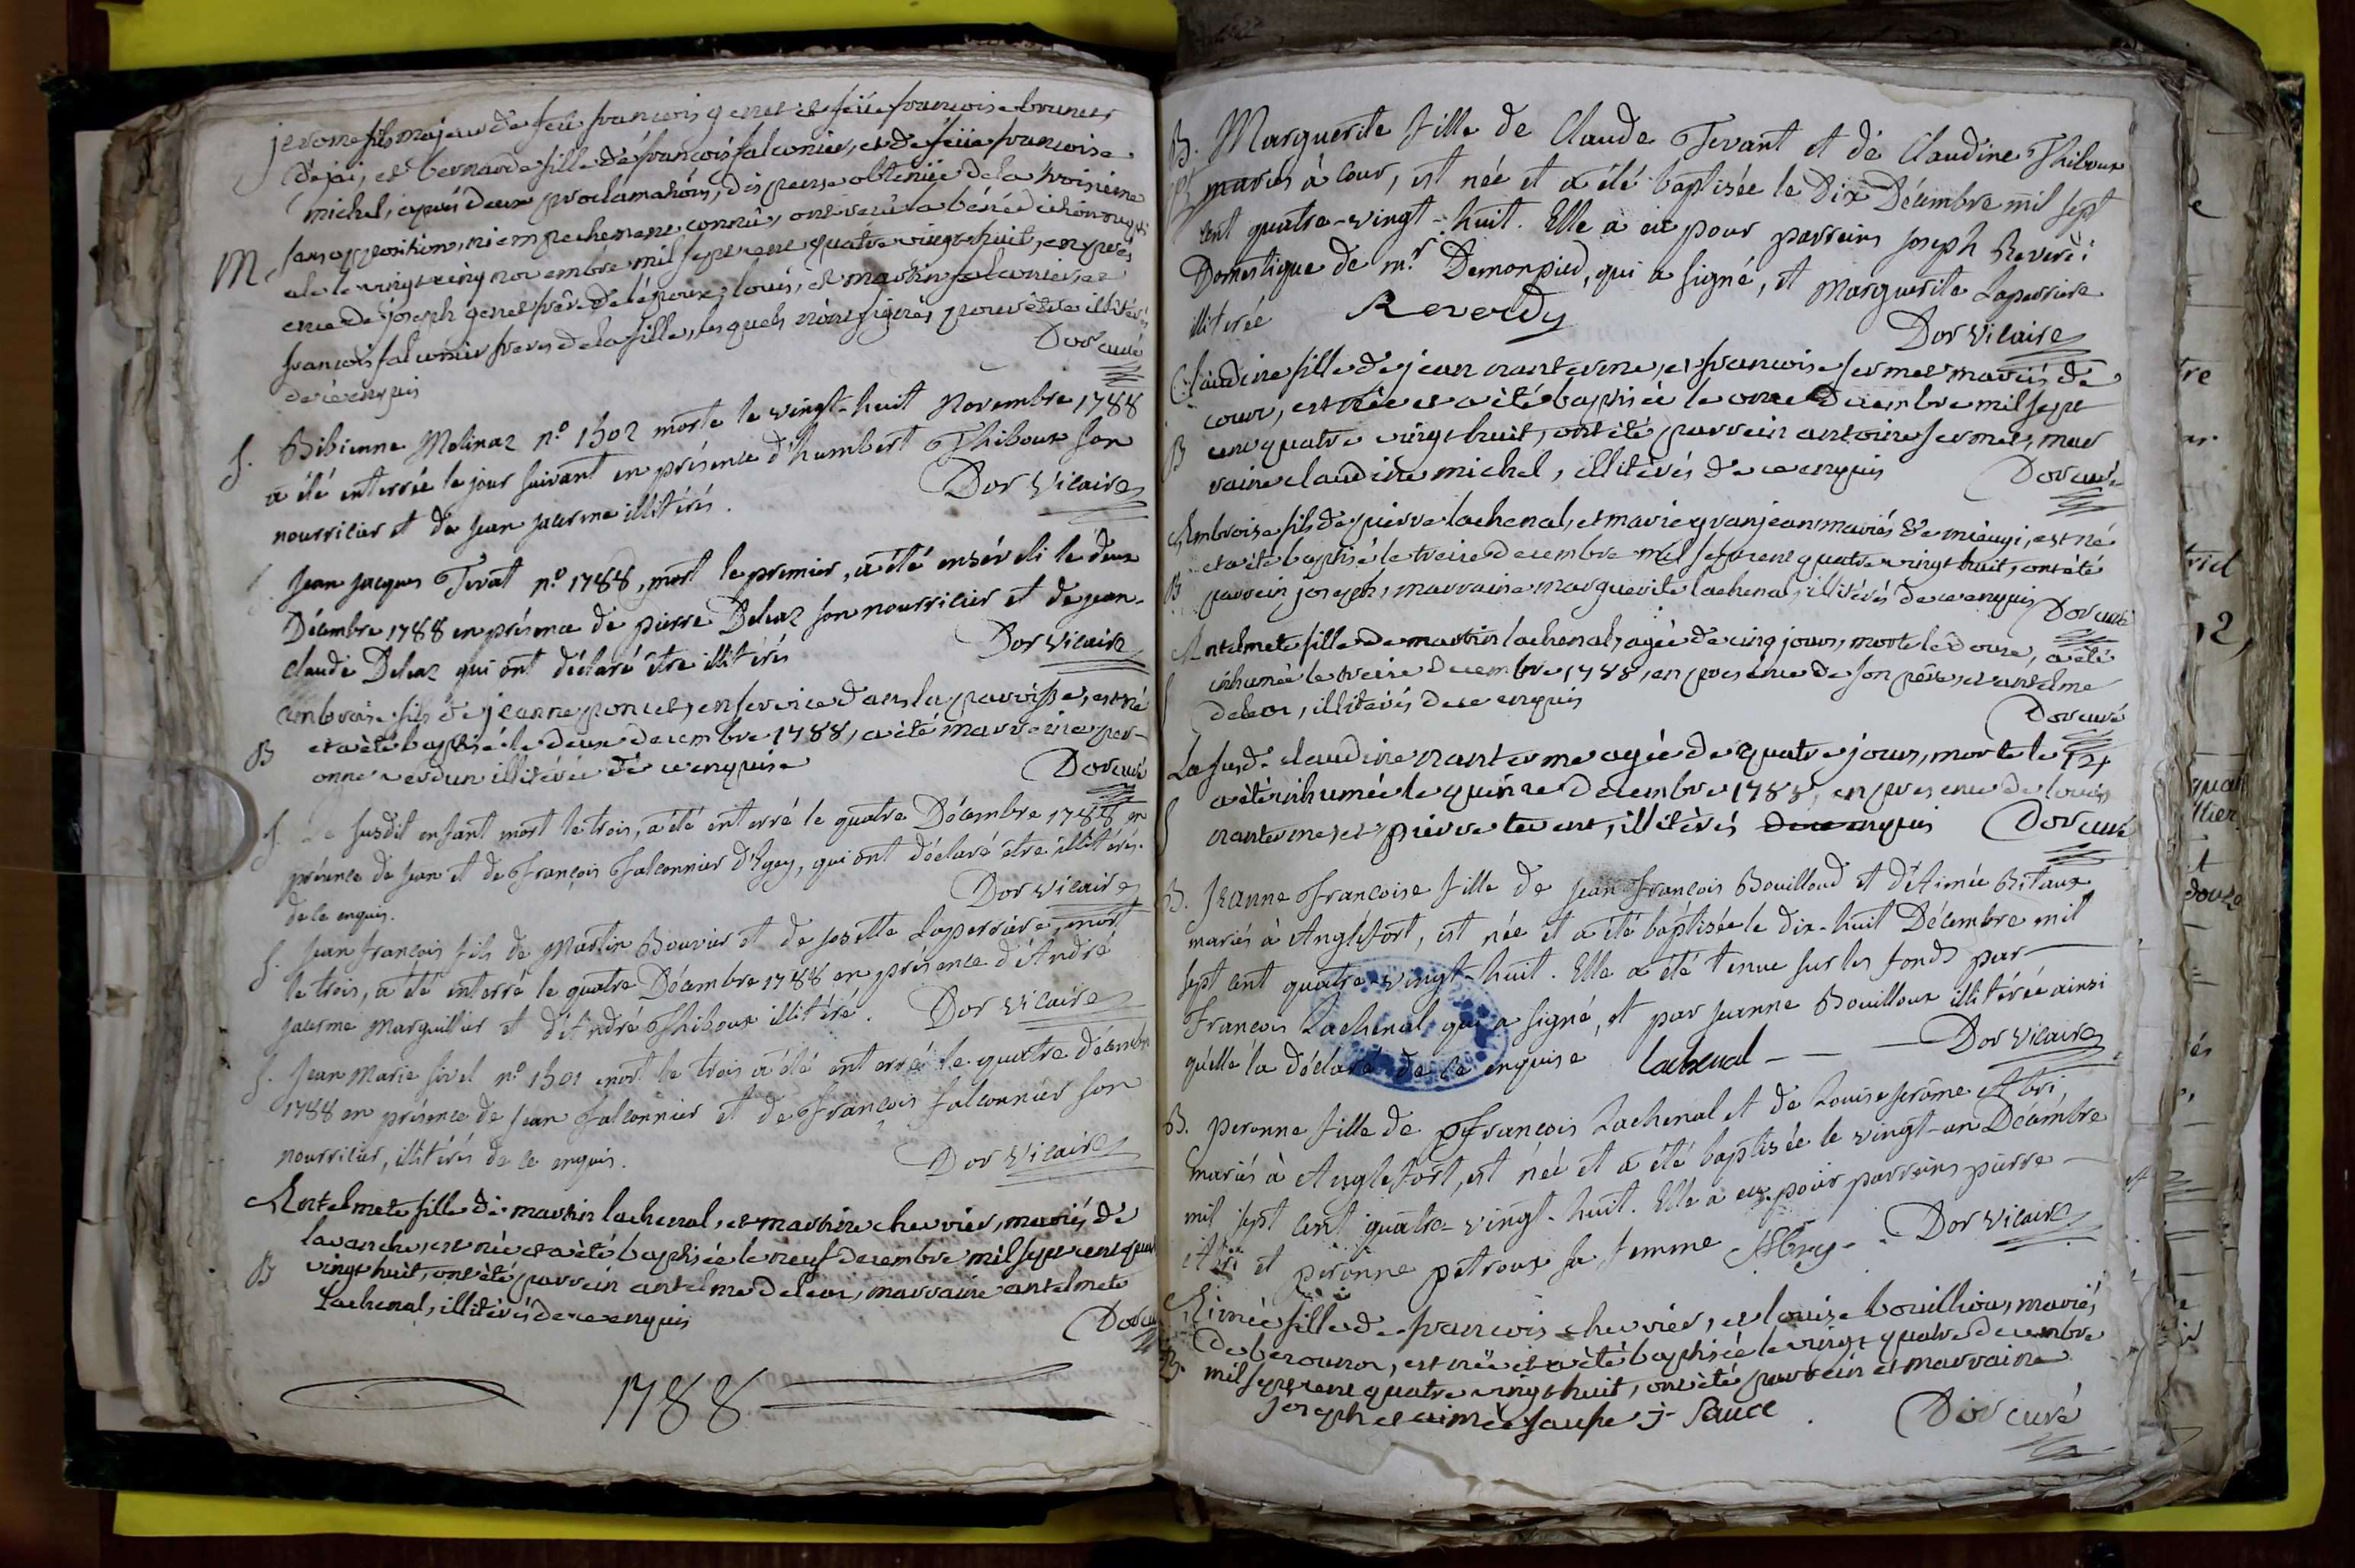 jerome fils majeur de feü francois genet et feüe francoise brunet
dejaï, et bernarde fille de francois falconier, et de feüe francoise
michel, après deux proclamations, dispense obtenüe de la troisieme
M sans opposition, ni empechement connû, ont recû la bénédiction nupti
ale le vingt cinq novembre mil sept cent quatre vingt huit, en prés
ence de joseph genet frère de l'époux, louis, et martin falconier, et
francois falconier freres de la fille, lesquels n'ont signés pour être illitérés
de ce enquis Dor curé
S. Bibienne Molinaz n.º 1502 morte le vingt-huit Novembre 1788
a été enterrée le jour suivant en présence d'humbert Thiboux son
nourricier et de jean jacerme illitérés. Dor Vicaire
Jean Jacques Tivat n.º 1788, mort le premier, a été enséveli le deux
Décembre 1788 en présence de pierre Deleaz son nourricier et de jean-
claude Deleaz qui ont déclaré être illitérés Dor Vicaire
ambroise fils de jeanne poncet, en service dans la paroisse, est né
B et a été baptisé le deux decembre 1788, a été marraine per-
onne verdun illitérée de ce enquise Dor curé
S. Le susdit enfant mort le trois, a été enterré le quatre Décembre 1788 en
présence de jean et de François Falconnier d'Igey, qui ont déclaré être illitérés.
de ce enquis. Dor Vicaire
S. Jean françois fils de Martin Bouvier et de josette Laperrière, mort
le trois, a été enterré le quatre Décembre 1788 en présence d'André
jacerme Marguillier et d'André Thiboux illitéré. Dor Vicaire
S. Jean Marie sivel n.º 1501 mort le trois a été enterré le quatre décembre
1788 en présence de jean Falconnier et de François falconnier son
nourricier, illitérés de ce enquis. Dor Vicaire
Antelmete fille de martin lachenal, et martine chevrier, mariés de
lavanche, est née et a été baptisée le neuf decembre mil sept cent quat
B vingt huit, ont été parrein antelme deleaz, marraine antelmete
Lachenal, illitérés de ce enquis Dor cu
1788
B. Marguerite fille de Claude Tevant et de Claudine Thiboux
mariés à Cour, est née et a été baptisée le Dix Décembre mil sept
cent quatre-vingt-huit. Elle a eû pour parreins joseph Reverdi
Domestique de m.r Demonpied, qui a signé, et Marguerite Laperriere
illiterée Reverdy Dor Vicaire
Claudine fille de jean nanterme, et francoise fermet mariés de
cour, est née et a été baptisée le onze decembre mil sept
B cent quatre vingt huit, ont été parrein antoine fermet, mar
raine claudine michel, illitérés de ce enquis Dor curé
Ambroise fils de pierre lachenal, et marie granjean mariés de mieugi, est né
et a été baptisé le treize decembre mil sept cent quatre vingt huit, ont été
B parrein joseph, marraine marguerite lachenal illitérés de ce enquis Dor curé
Antelmete fille de martin lachenal, agée de cinq jours, morte le douze, a été
inhumée le treize decembre 1788, en presence de son père, et antelme
deleaz, illitérés de ce enquis Dor curé
La susd.e claudine nanterme agée de quatre jours, morte le 14
a été inhumée le quinze decembre 1788, en presence de louis
nanterme, et pierre tevent, illitérés de ce enquis Dor curé
B. Jeanne Francoise fille de jean François Bouilloud et d'Aimée Bitaux
mariés à Anglefort, est née et a été baptisée le dix-huit Décembre mil
sept cent quatre-vingt-huit. Elle a été tenue sur les fonds par
François Lachenal qui a signé, et par jeanne Bouilloux illitérée ainsi
qu'elle l'a déclaré de ce enquise Lachenal Dor Vicaire
B. peronne fille de François Lachenal et de Louise jerôme Abri
mariés à Anglefort, est née et a été baptisée le vingt-un Décembre
mil sept cent quatre-vingt-huit. Elle a eu pour parreins pierre
Abri et peronne petroux sa femme Abry Dor Vicaire
Aimée fille de francois chevrier, et louise bouillioux, mariés
de berounoz, est née et a été baptisée le vingt quatre decembre
B. mil sept cent quatre vingt huit, ont été parrein et marraine
joseph et aimée sause j- Sauce Dor curé